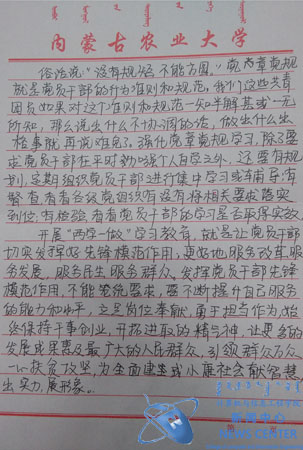 内蒙古农业大学
俗话说“没有规矩不能方圆。”党内章党规
就是党员干部的行为准则和规范，我们这些共青
团员如果对这个准则和规范一知半解甚或一无
所知，那么说出什么不协调的话，做出什么出
格事就再说难免了。强化党章党规学习，除了要
求党员干部在平时劲加强个人自学之外，还要有规
划、定期组织党员干部进行集中学习或辅导；有
督查，看看各级党组织有没有将相关要求落实
到位；有检验，看看党员干部的学习是否取得实效
开展“两学一做”学习教育，就是让党员干部
切实发挥好先锋模范作用，更好地服务改革、服
务发展、服务民生、服务群众。发挥党员干部先锋
模范作用，不能笼统要求，要不断提升自己服务
的能力和水平，立足岗位奉献，勇于担当作为，始
终保持干事创业、开拓进取的精气神，让更多的
发展成果惠及最广大的人民群众，引领群众万众
一心扶贫攻坚，为全面建成小康社会献智慧
出实力、展形象。
新闻中心
NEWS CENTER